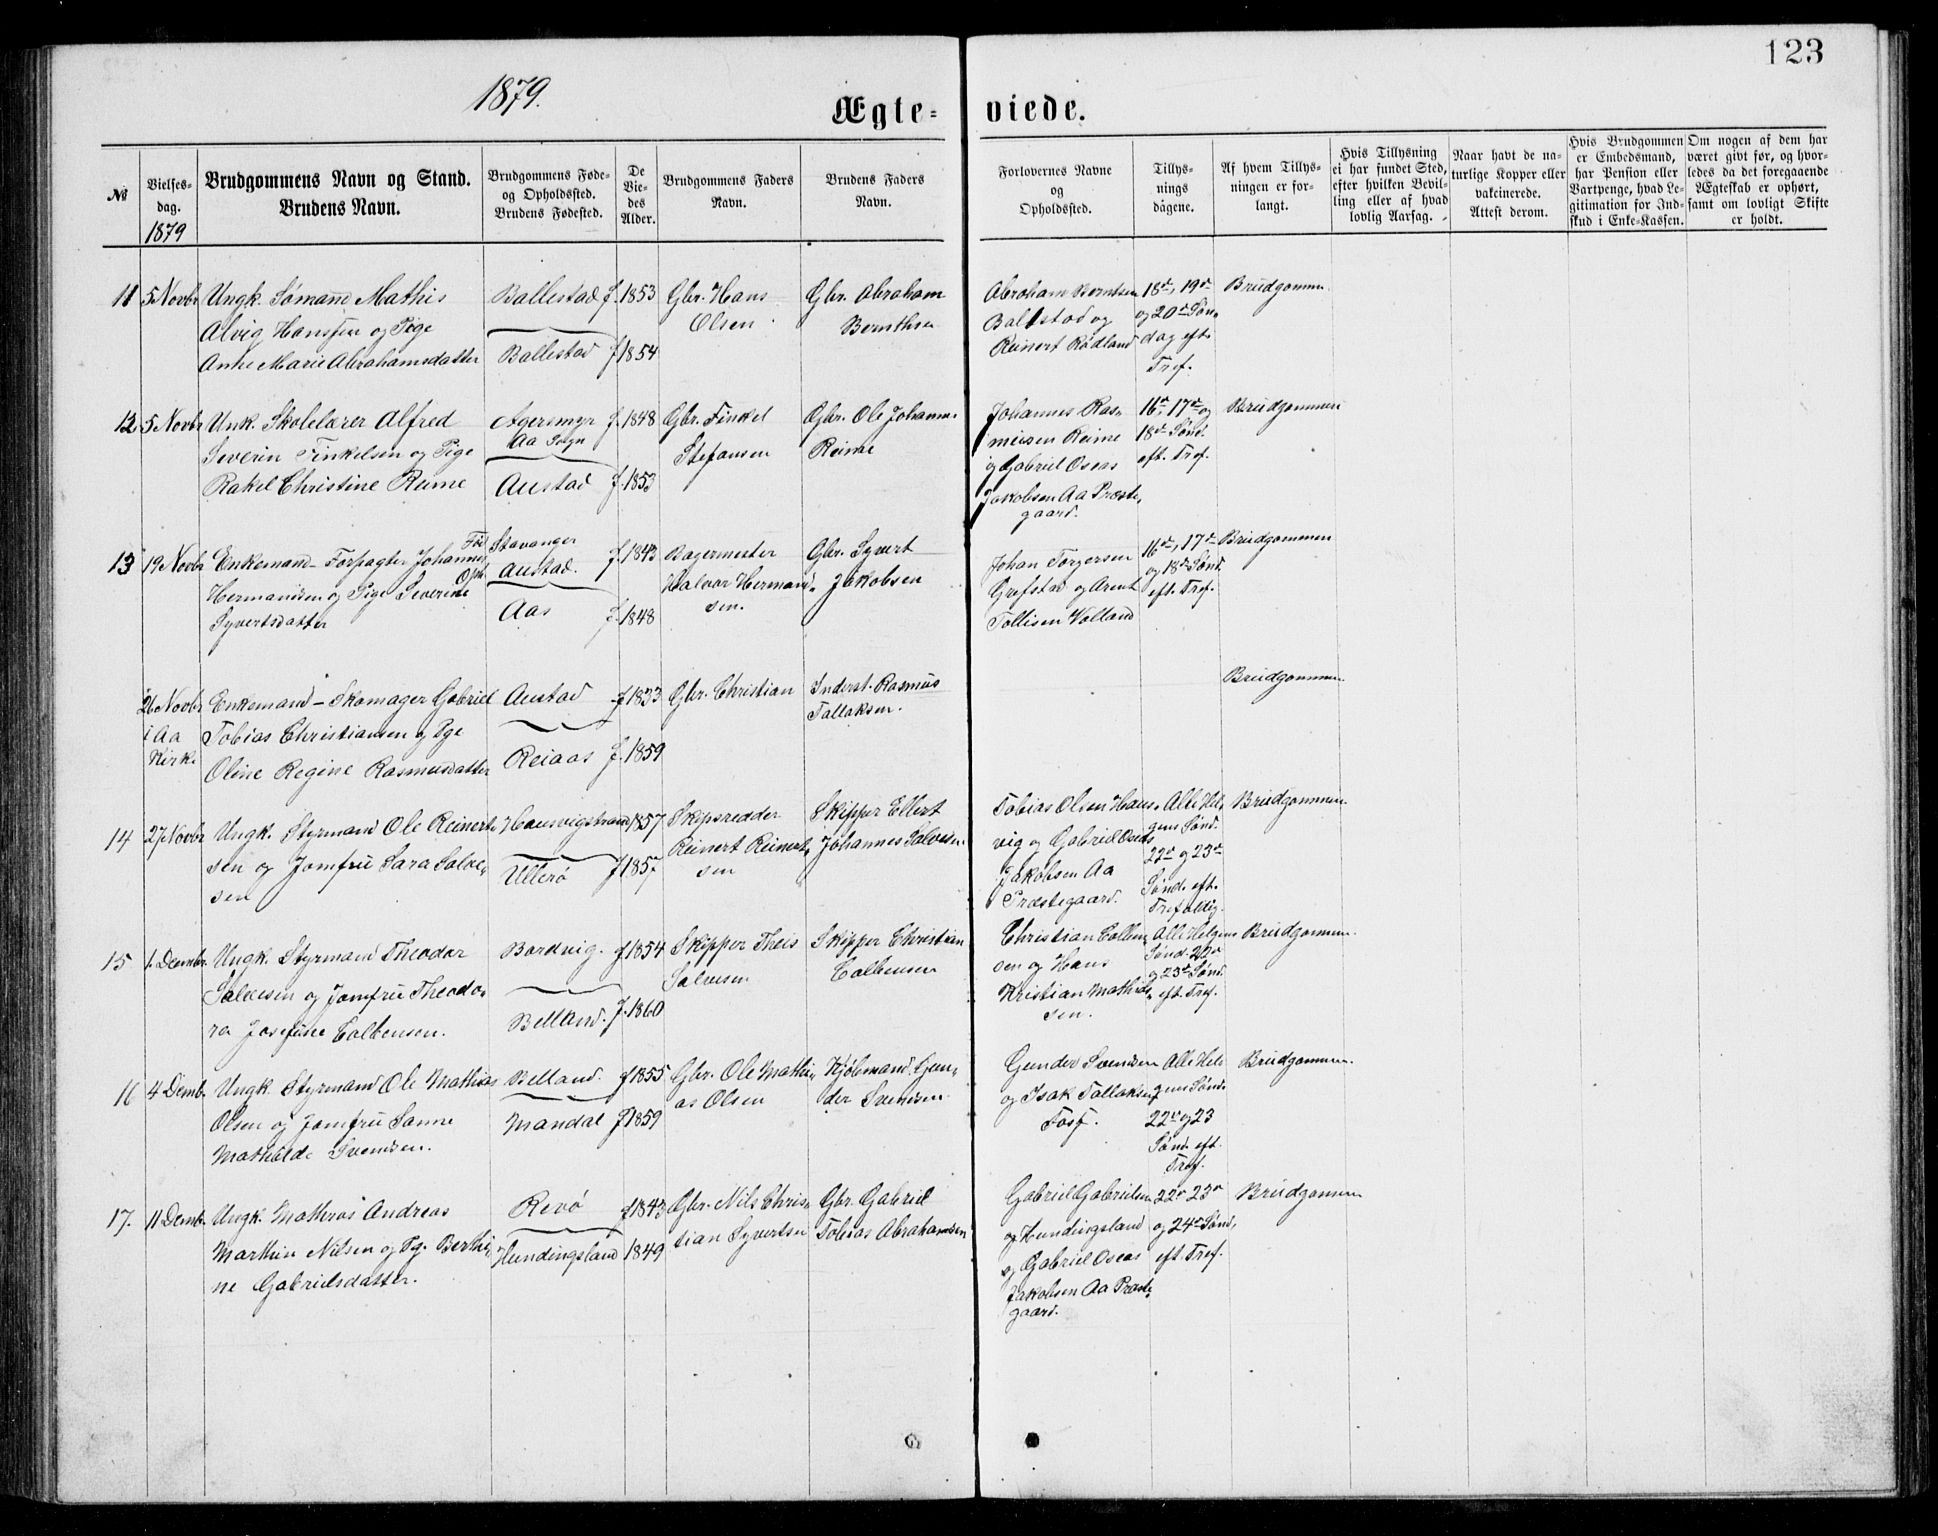 123
1879.
Ægte-
viede.
№
Vielses-
dag.
1879
Brudgommens Navn og Stand.
Brudens Navn.
Brudgommens Føde-
og Opholdssted.
Brudens Fødested.
De
Vie-
des
Alder.
Brudgommens Faders
Navn.
Brudens Faders
Navn.
Forlovernes Navne
og
Opholdssted.
Tillys-
nings
dagene.
Af hvem Tillys-
ningen er for-
langt.
Hvis Tillysning
ei har fundet Sted,
efter hvilken Bevil-
ling eller af hvad
lovlig Aarsag.
Naar havt de na-
turlige Kopper eller
vakcinerede.
Attest derom.
Hvis Brudgommen
er Embedsmand,
har Pension eller
Vartpenge, hvad Le-
gitimation for Ind-
skud i Enke-Kassen.
Om nogen af dem har
været givt før, og hvor-
ledes da det foregaaende
Ægteskab er ophørt,
samt om lovligt Skifte
er holdt.
11
5 Novbr
Ungk. Sømand Mathis
Alvig Hanssen og Pige
Anne Marie Abrahamsdatter
Ballestad
Ballestad
f. 1853
f. 1854
Gbr. Hans
Olsen
Gbr. Abraham
Bernthsen
Abraham Berntsen
Ballestad og
Reinert Rødland
18de, 19de
og 20de Søn-
dag eft.
Tref.
Brudgommen
12
5 Novbr
Unk. Skolelærer Alfred
Severin Finkelsen og Pige
Rakel Christine Reime
Agersmyr
Aa Sogn
Austad
f. 1848
f. 1853
Gbr. Finkel
Stefansen
Gbr. Ole Johann.
Reime
Johannes Ras-
musen Reime
og Gabriel Oseas
Jakobsen Aa Præste-
gaard.
16de, 17de og
18de Sønd.
eft. Tref.
Brudgommen
13
19 Novbr
Enkemand - Forpagter Johannes
Hermansen og Pige Severine
Syvertsdatter
Fød
Stavanger
Oph.
Austad.
Aas
f. 1843
f. 1848
Bagermester
Halvor Herman-
sen.
Gbr. Syvert
Jakobsen
Johan Torgersen
Grefstad og Arent
Tollisen Volland
16de, 17de
og 18de Sønd.
eft. Tref.
Brudgommen
26 Novbr
i Aa
Kirk.
Enkemand - Skomager Gabriel
Tobias Christiansen og Pge
Oline Regine Rasmusdatter
Austad
Reiaas
f 1833
f. 1859
Gbr. Christian
Inderst. Rasmus
Tallaksen.
Brudgommen
14
27 Novbr
Ungk. Styrmand Ole Reinert-
sen og Jomfru Sara Salve-
sen
Haavigstrand
Ullerø
1857
f 1857
Skipsredder
Reinert Reinert-
sen
Skipper Ellert
Johannes Salvesen
Tobias Olsen Haus-
vig og Gabriel Oseas
Jakobsen Aa
Præstegaard.
Alle Hel-
gens Sønd.
22de og 23de
Sønd. eft.
Trefoldig.
Brudgommen
15
1. Dcembr.
Ungk. Styrmand Theodor
Salvesen og Jomfru Theodo-
ra Josefine Colbensen.
Bardvig.
Belland.
f 1854
f. 1860
Skipper Theis
Salvesen
Skipper Christian
Colbensen
Christian Colben-
sen og Hans
Kristian Mathis-
sen.
Alle Helgens
Sønd. 22de
og 23de Sønd.
eft. Tref.
Brudgommen.
16
4 Dcemb.
Ungk. Styrmand Ole Mathias
Olsen og Jomfru Sanne
Mathilde Svendsen.
Belland.
Mandal
f 1855
f 1859
Gbr. Ole Mathi-
as Olsen
Kjøbmand Gun-
der Svendsen
Gunder Svendsen
og Isak Tallaksen
Foss.
Alle Hel-
gens Sønd.
22de og 23
Sønd. eft.
Tref.
Brudgommen.
17.
11 Dcemb.
Ungk. Mathias Andreas
Marthin Nilsen og Pg. Berthi-
ne Gabrielsdatter.
Revø
Hundingsland
f 1843
1849
Gbr. Nils Chris-
tian Syvertsen
Gbr. Gabriel
Tobias Abrahamsen
Gabriel Gabrielsen
og Hundingsland
og Gabriel Oseas
Jakobsen Aa Præste-
gaard.
22de 23de
og 24de Sønd.
eft. Tref.
Brudgommen